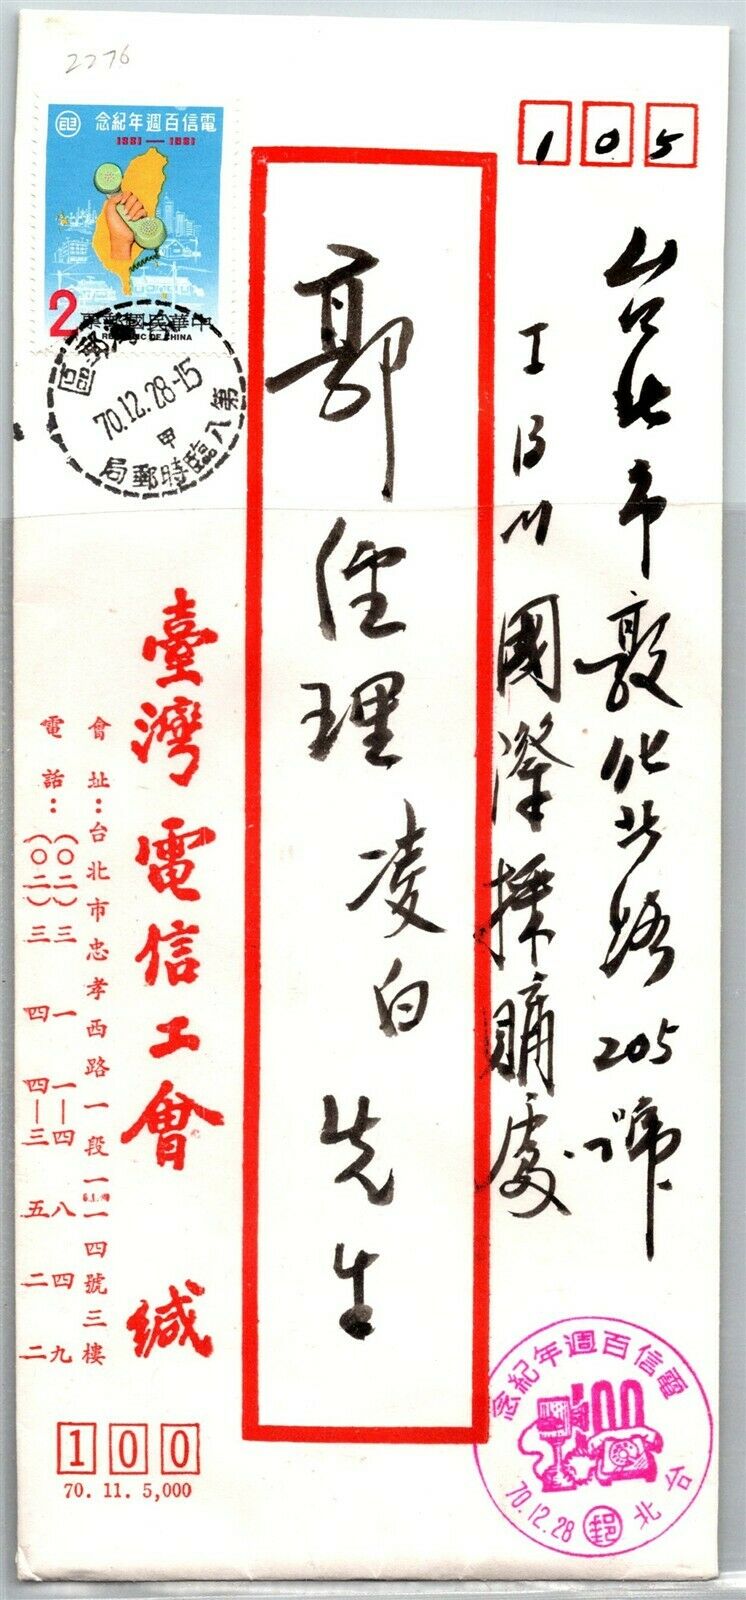 2276
電信百週年紀念
1881—1981
2
中華民國郵票
REPUBLIC OF CHINA
70.12.28-15
甲
第八臨時郵局
105
台北市敦化北路205號
IBM國際採購處
郭經理凌白先生
臺灣電信工會 緘
會址：台北市忠孝西路一段一一四號三樓
電話：(〇二)三一一一四八四九
(〇二)三四四一三五二二
100
70. 11. 5,000
電信百週年紀念
台北
郵
70.12.28